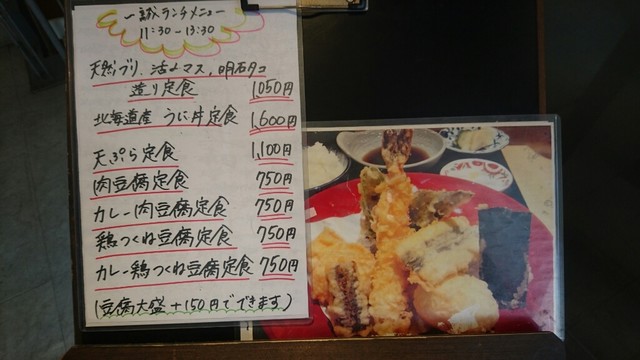 一誠ランチメニュー
11:30-13:30
天然ブリ、活〆マス、明石タコ
造り定食 1,050円
北海道産 うに丼定食 1,600円
天ぷら定食 1,100円
肉豆腐定食 750円
カレー肉豆腐定食 750円
鶏つくね豆腐定食 750円
カレー鶏つくね豆腐定食 750円
(豆腐大盛+150円でできます)